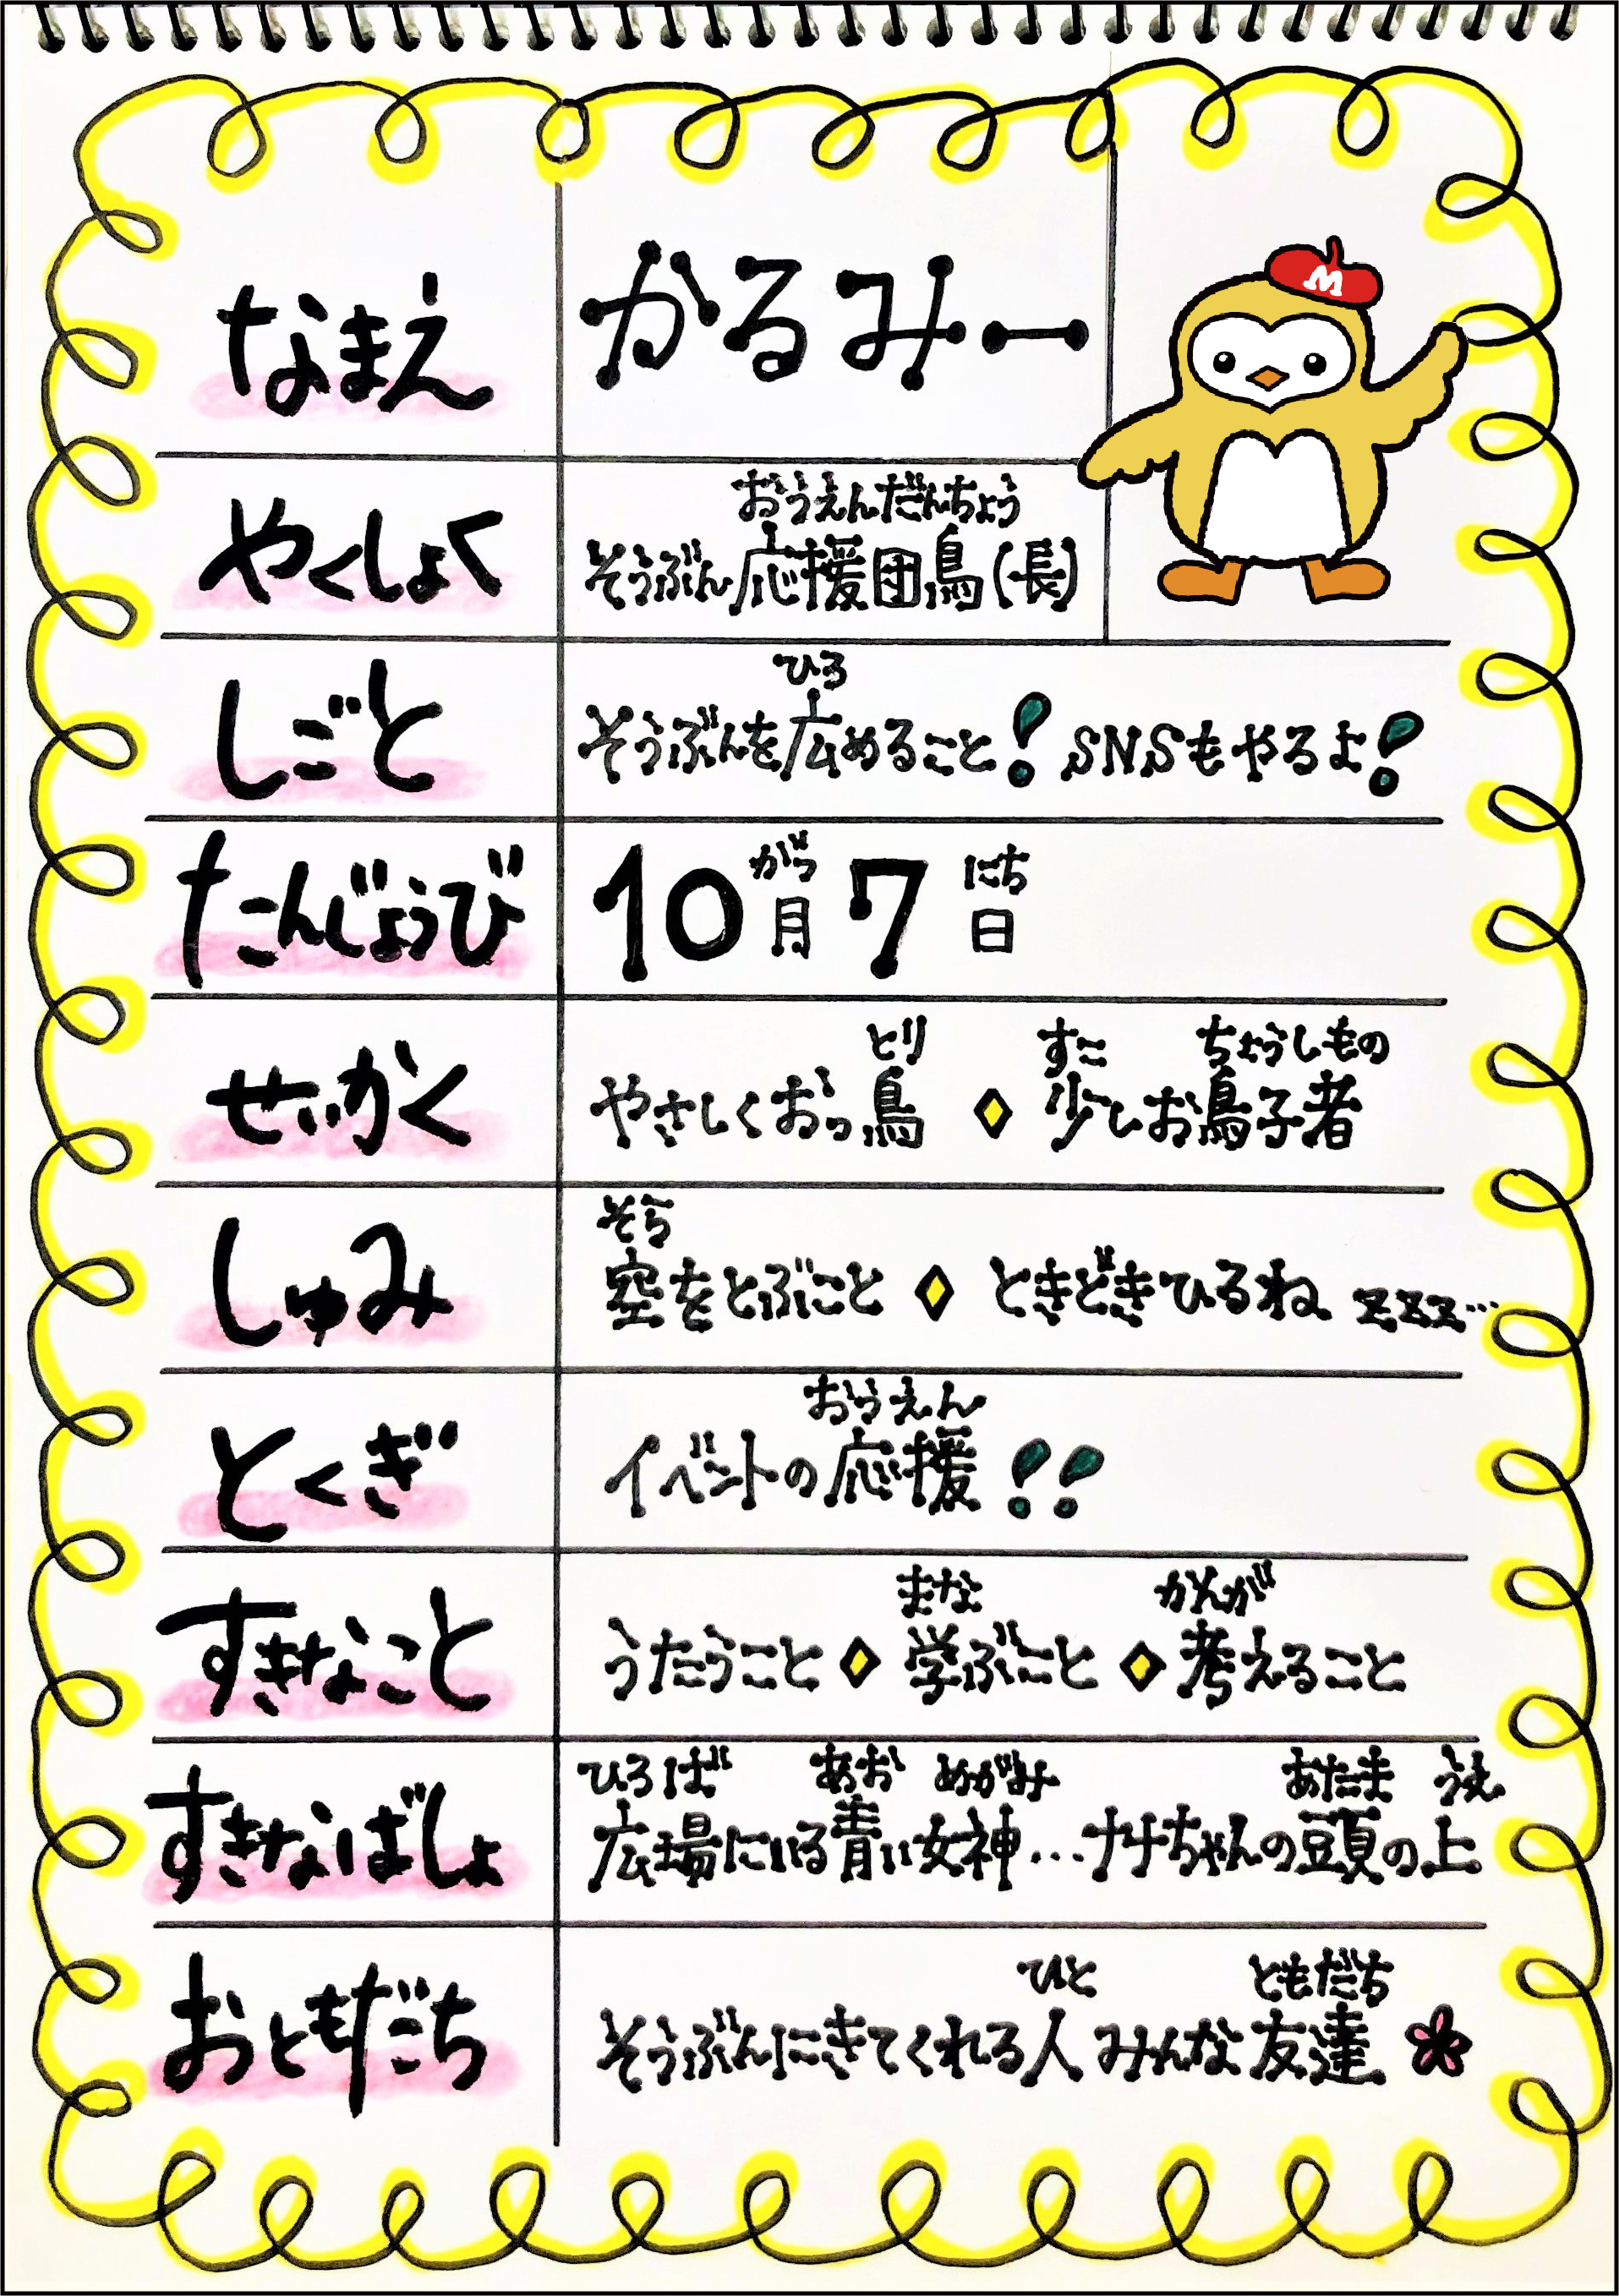 なまえ
かるみー
M
やくしょく
おうえんだんちょう
そうぶん応援団鳥(長)
しごと
ひろ
そうぶんを広めること! SNSもやるよ!
たんじょうび
がつ にち
10月7日
せいかく
とり すこ ちょうしもの
やさしくおっ鳥 ◇ 少しお鳥子者
しゅみ
そら
空をとぶこと ◇ ときどきひるね zzz…
とくぎ
おうえん
イベントの応援!!
すきなこと
まな かんが
うたうこと ◇ 学ぶこと ◇ 考えること
すきなばしょ
ひろば あお めがみ あたま うえ
広場にいる青い女神…ナナちゃんの頭の上
おともだち
ひと ともだち
そうぶんにきてくれる人 みんな友達